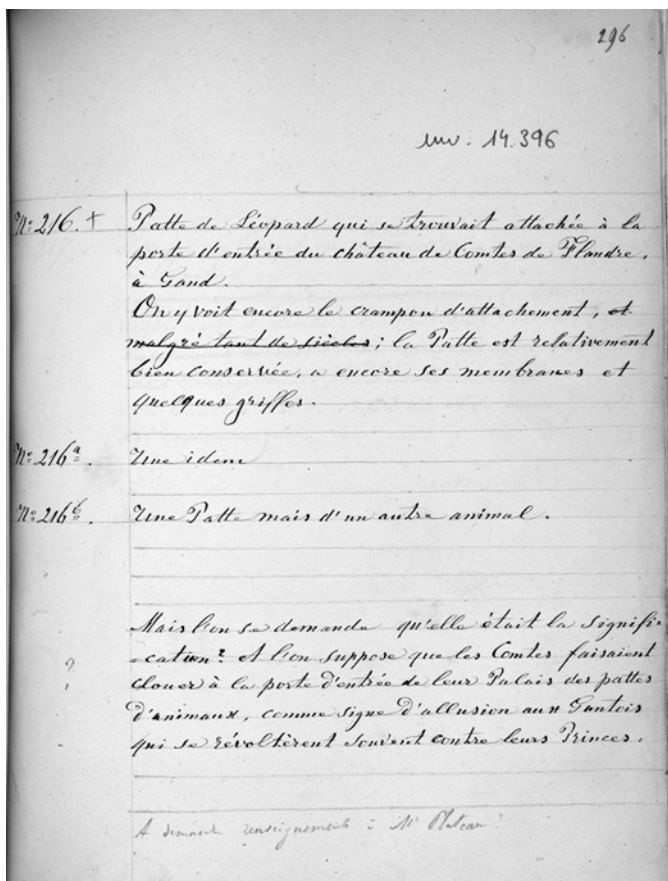 296
inv. 14.396
Nº 216. + Patte de Léopard qui se trouvait attachée à la
porte d'entrée du château de Comtes de Flandre,
à Gand.
On y voit encore le crampon d'attachement, et
malgré tant de siècles; la Patte est relativement
bien conservée, a encore ses membranes et
quelques griffes.
Nº 216ª. Une idem
Nº 216b. Une Patte mais d'un autre animal.
Mais l'on se demande qu'elle était la signifi-
-cation? et l'on suppose que les Comtes faisaient
? clouer à la porte d'entrée de leur Palais des pattes
d'animaux, comme signe d'allusion aux Gantois
qui se révoltèrent souvent contre leurs Princes.
A demandé renseignements à Mr Plateau